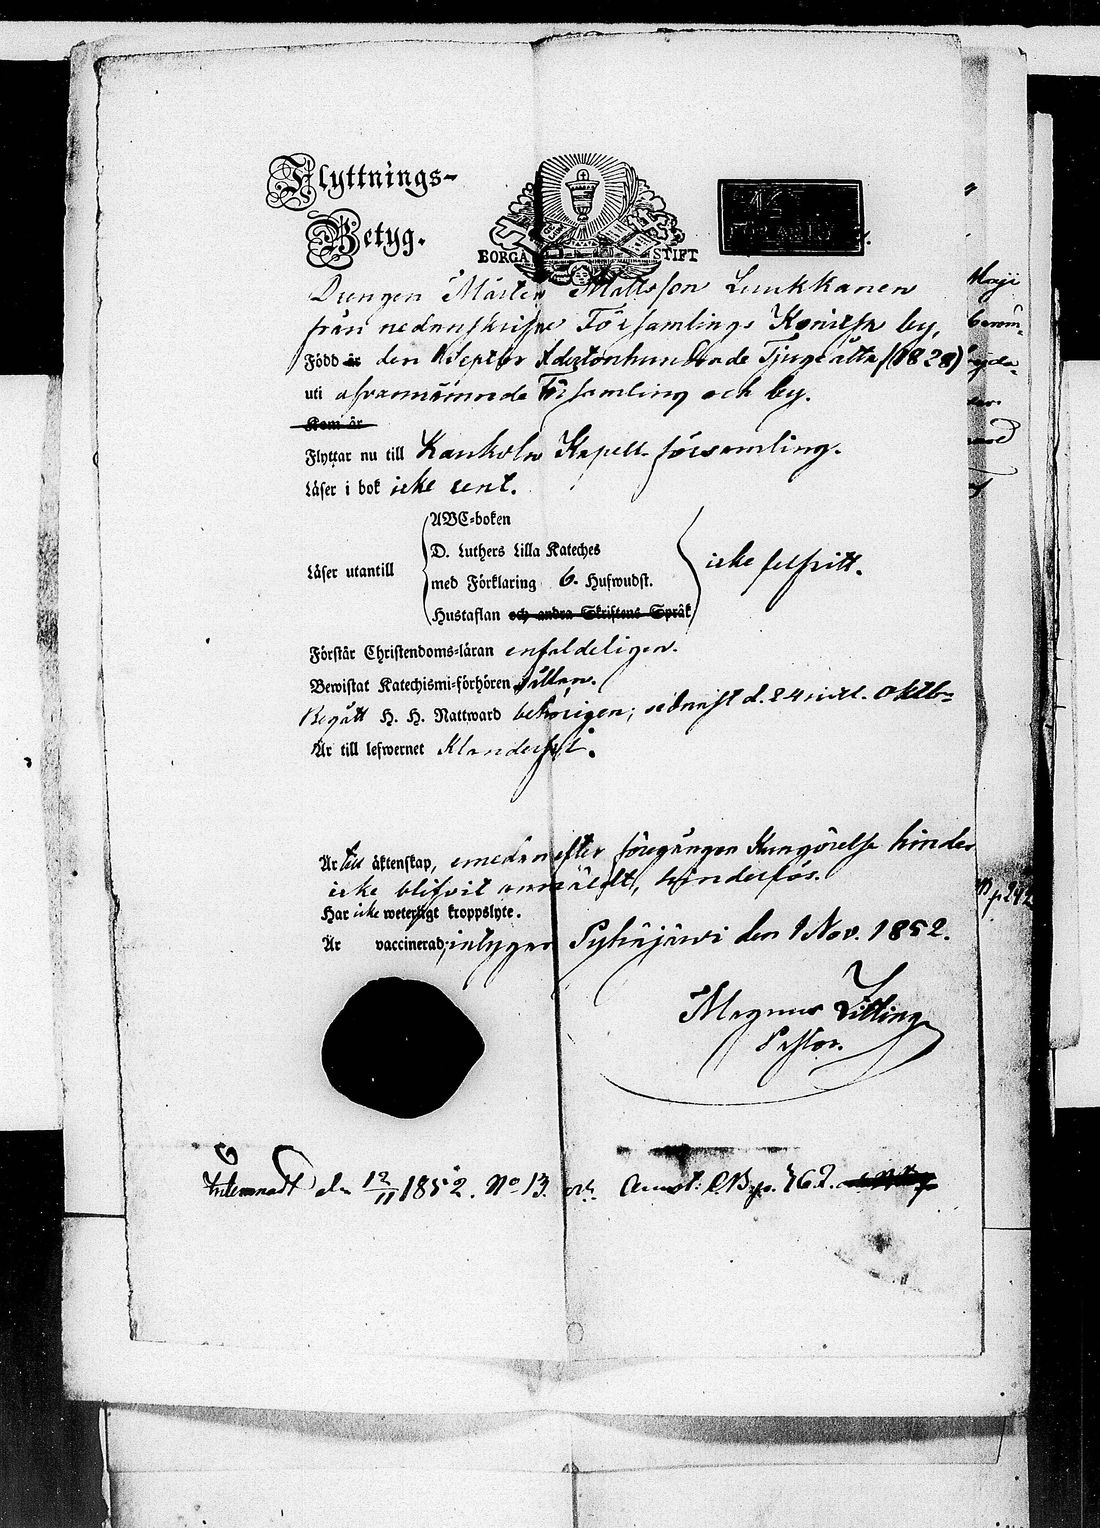 Flyttnings-
Betyg.
BORGÅ STIFT
Drengen Mårten Mattsson Luukkanen
från nedanskrifne Församlings Konitsa by,
Född är den 1 Septbr Adertonhundrade Tjugeåtta (1828)
uti ofvannämnde Församling och by.
Kom år
Flyttar nu till Kaukola Kapell församling.
Läser i bok icke rent.
ABC-boken
D. Luthers Lilla Kateches
Läser utantill med Förklaring 6. Hufwudst. icke felfritt.
Hustaflan och andra Skriftens Språk
Förstår Christendoms-läran enfaldeligen.
Bewistat Katechismi-förhören sällan.
Begått H. H. Nattward behörigen; sednast d. 24 sistl. Oktb-
Är till lefwernet Klanderfri.
Är till äktenskap, emedan efter föregången Kungörelse hinder
icke blifvit anmäldt, hinderlös.
Har icke weterligt kroppslyte.
Är vaccinerad; intygar Pyhäjärwi den 1 Nov. 1852.
Magnus Zitting
Pastor.
Inlemnadt den 12/11 1852. No 13. och Annot: C.B. p. 762.
p 292